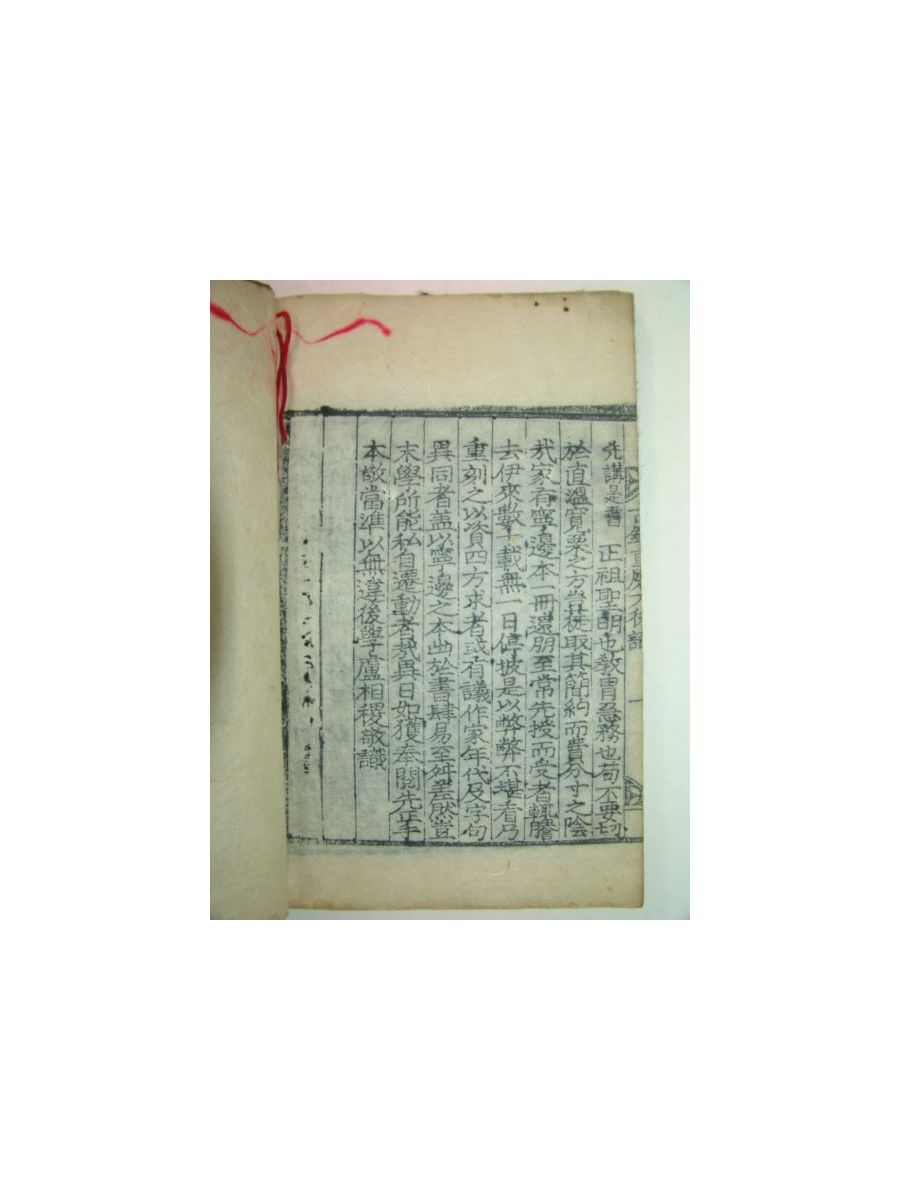 先講是書 正祖聖明也敎胄急務也苟不要切
於直溫寬栗之方豈徒取其簡約而費分寸之陰
哉家有寧邊本一冊遠朋至常先授而受者輒謄
去伊來數十載無一日停披是以弊弊不堪看乃
重刻之以資四方求者或有議作家年代及字句
異同者盖以寧邊之本曲於書肆易至舛差然豈
末學所能私自遷動者哉異日如獲奉閱先正手
本敬當準以無違後學盧相稷敬識